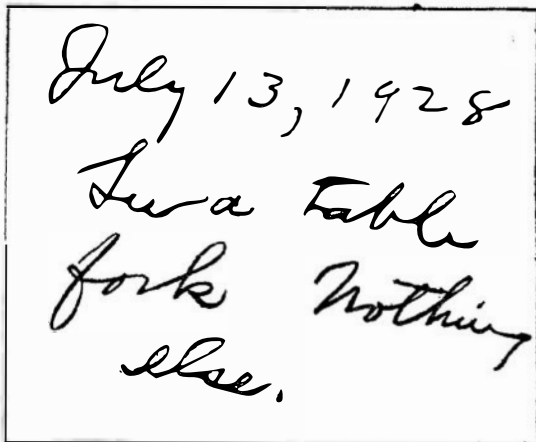 July 13, 1928
See a table
fork Nothing
else.